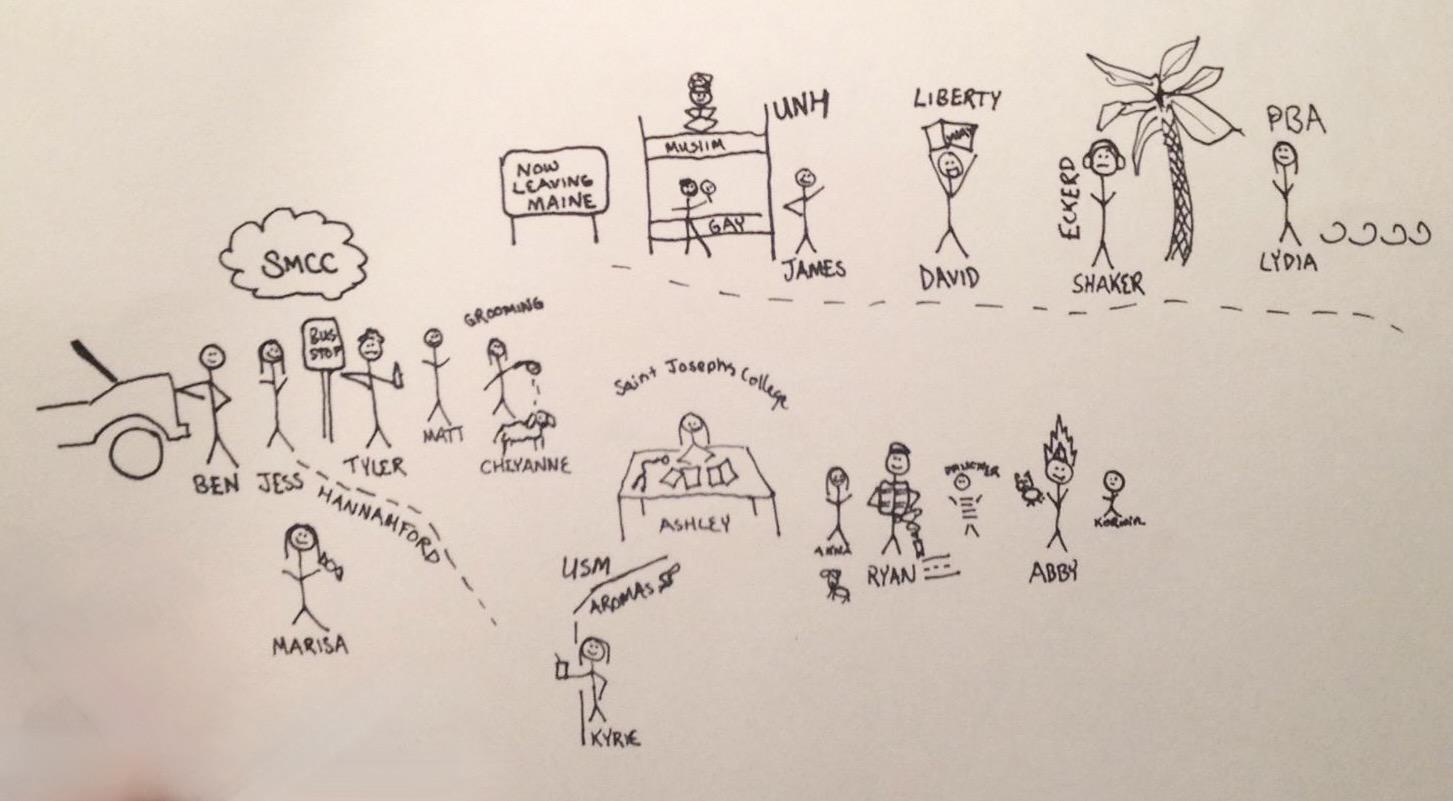 UNH
LIBERTY
WAY
PBA
MUSLIM
NOW
LEAVING
MAINE
GAY
ECKERD
JAMES
DAVID
SHAKER
LYDIA
SMCC
BUS
STOP
GROOMING
MATT
CHEYANNE
BEN
JESS
TYLER
HANNAHFORD
MARISA
Saint Josephs College
ASHLEY
USM
AROMAS
KYRIE
ANNA
RYAN
ABBY